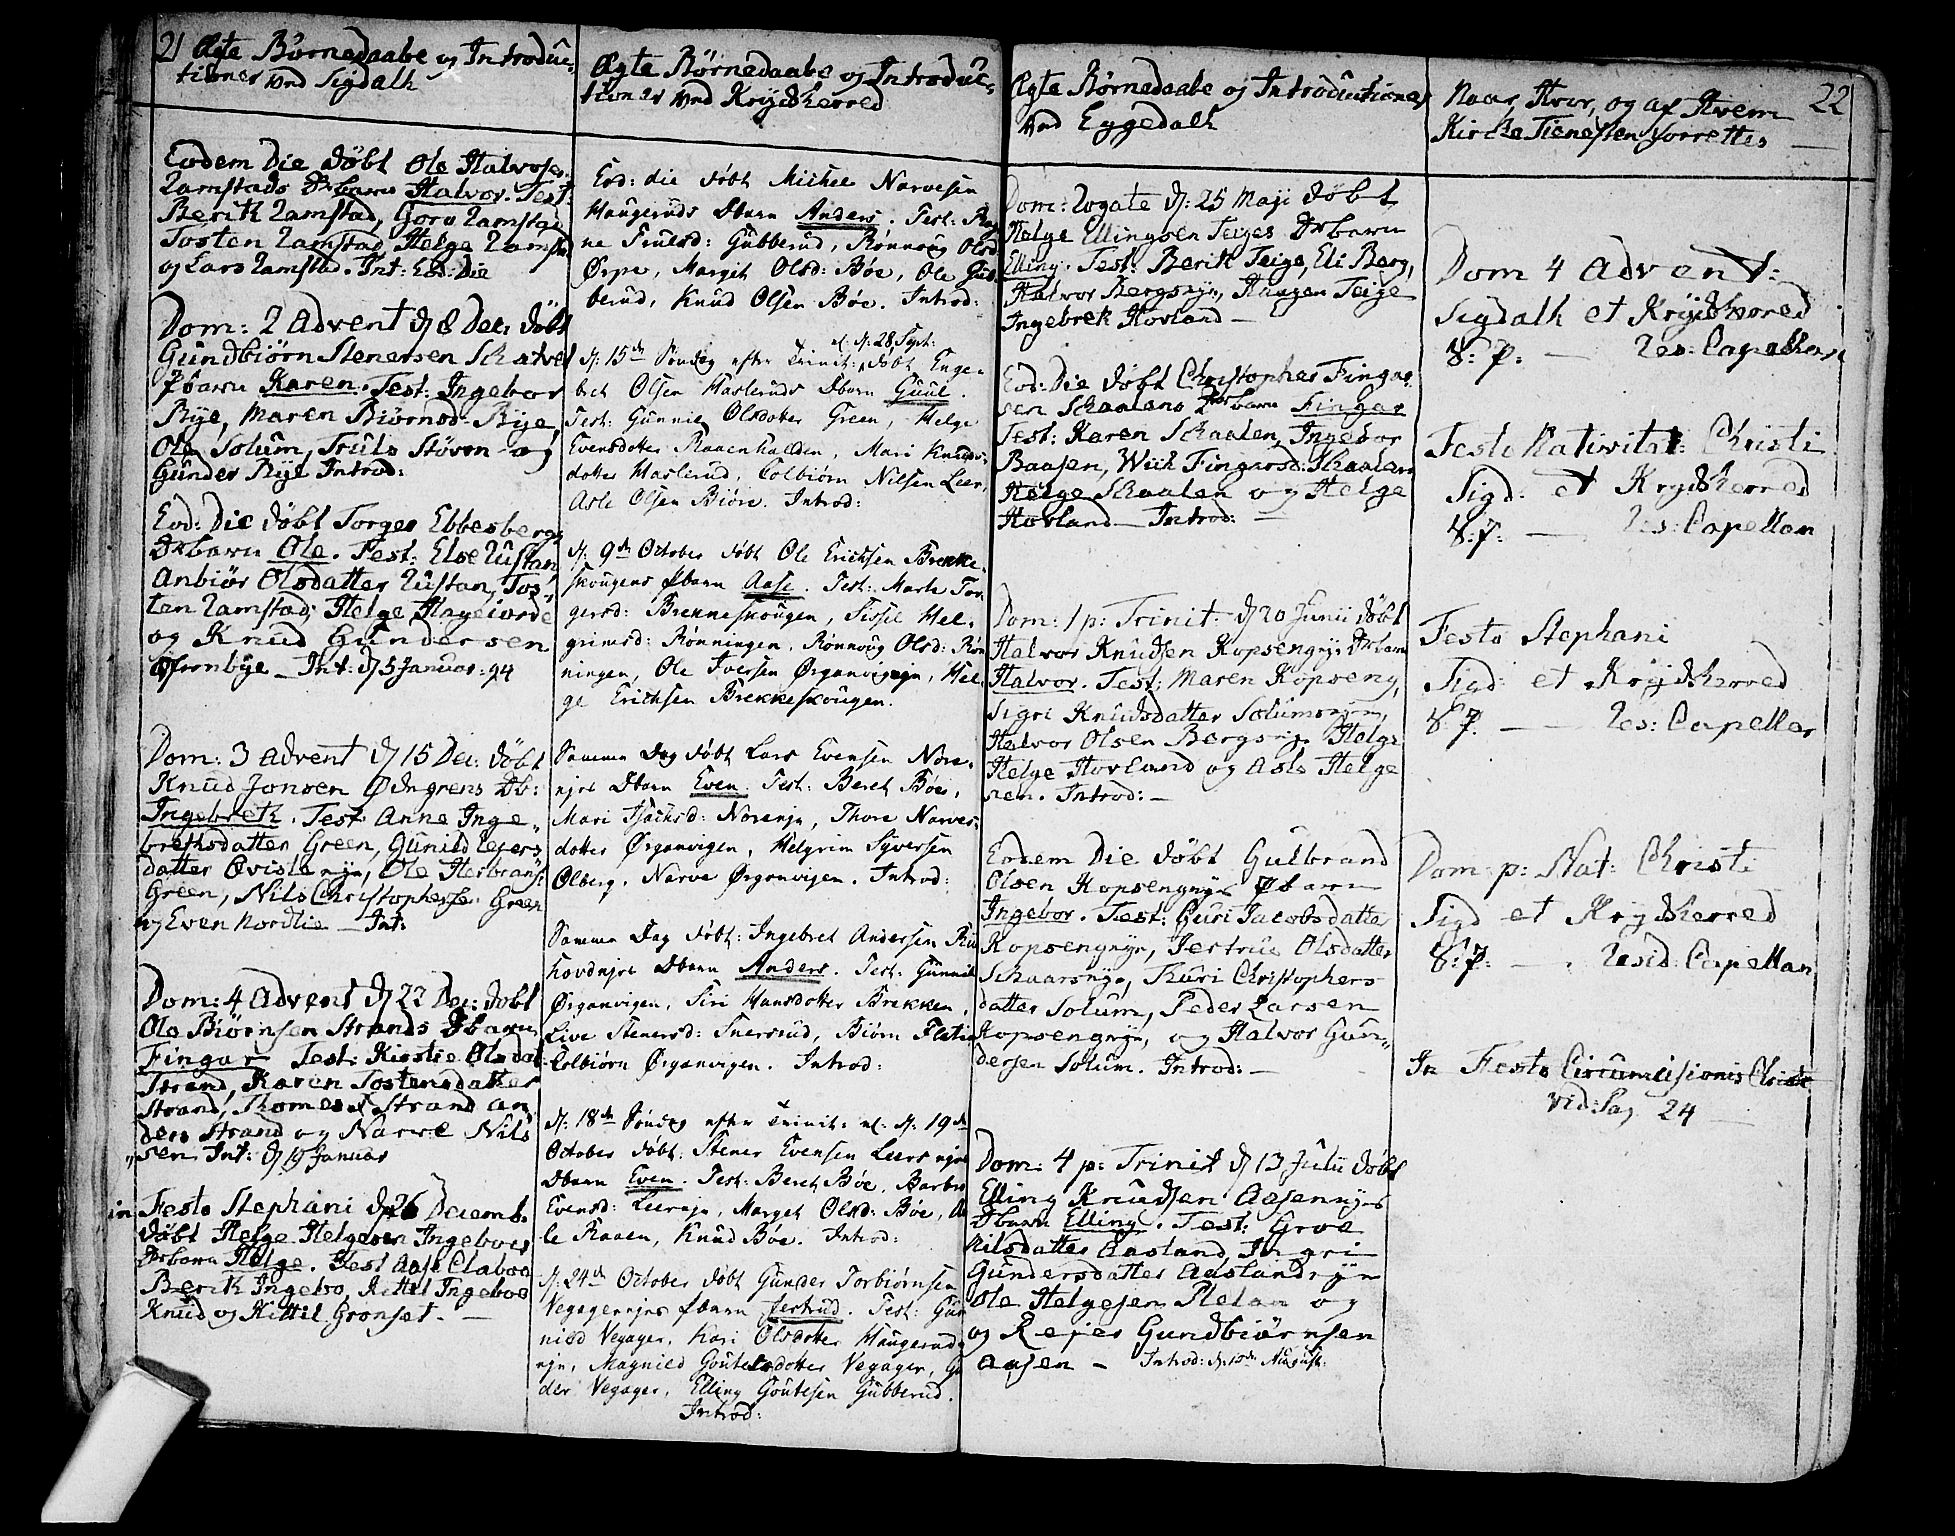 21 Ægte Børnedaabe og Introduc-
tioner ved Sigdahl
Eodem Die døbt Ole Halvors:
Lamstads Drbarn Halvor. Test:
Berith Lamstad, Goro Lamstad
Tosten Lamstad Helge Lamst
og Lars Lamstad. Int: Eod: Die
Dom: 2 Advent d 8 Dec: døbt
Gundbiørn Stenersen Skatvel
Pbarn Karen. Test: Ingebor
Bye, Maren Biørnsd. Bye,
Ole Solum, Truls Støven og
Gunder Bye Introd:
Eod: Die døbt Torger Ebbesberg
Drbarn Ole. Test: Else Lustan
Anbiør Olsdatter Lustan, Tos,
ten Lamstad, Helge Hageiorde
og Knud Gundersen
Ofrombye _ Int: d 5 Januar: 94
Dom: 3 Advent d 15 Dec: døbt
Knud Jonsen Ødegrens Db:
Ingebreth. Test: Anne Inge,,
brethsdatter Green, Gunild Lejers
datter Qvisle nyn, Ole Herbrans:
Green, Nils Christophersen Green
og Even Nordlie _ Int:
Dom: 4 Advent d 22 Dec: døbt
Ole Biørnsen Strands Dbarn
Fingar Test: Kirstie Olsdat
Strand, Karen Tostensdatter
Strand, Thomes Strand An,
ders Strand og Narve Nils
,,sen Int: d 19 Januar
in Festo Stephani d 26 Decemb.
døbt Helge Helgesen Ingeboes
Drbarn Helge. Test Aase Elaboe
Berith Ingebo, Kittel Ingeboe
Knud og Kittil Gronset. _
Ægte Børnedaabe og Introduc-
tioner ved Krydsherred
Eod: die døbt Michel Narvesen
Haugeruds Dbarn Anders. Test: Rag
ne Truelsd: Gubberud, Rønnoug Olsd
Ørpe, Margit Olsd: Bøe, Ole Gub
berud, Knud Olsen Bøe. Introd:
nl: d: 28 Sept:
d: 15de Søndag efter Trinit: døbt Enge-
bret Olsen Hasleruds Dbarn Guul.
Test: Gunnil Olsdotter Green, Helge
Evensdotter Raaenhallden, Mari Knuds-
dotter Haslerud, Colbiørn Nilsen Leer,
Asle Olsen Biøre. Introd:
d: 9de October døbt Ole Ericksen Brekke-
skougens Pbarn Aase. Test: Marte Tor
gersd: Brekkeskougen, Sissil Hel-
grimsd: Rønningen, Rønnoug Olsd: Røn
ningen, Ole Iversen Ørgenvignejn, Hel-
ge Ericksen Brekkeskougen.
Samme Dag døbt Lars Evensen Nore-
njes Dbarn Even. Test: Beret Bøe,
Mari Isachsd: Norenjn, Thore Narves-
dotter Ørgenvigen, Helgrim Syversen
Olberg, Narve Ørgenvigen. Introd:
Samme Dag døbt: Ingebret Andersen Ru
hovdnjes Dbarn Anders. Test: Gunnil
Ørgenvigen, Siri Hansdotter Brekken,
Live Stenersd: Snersrud, Biørn Flatin
Colbiørn Ørgenvigen. Introd:
d: 18de Søndag efter Trinit: nl: d: 19de
October døbt: Stener Evensen Leers njes
Dbarn Even. Test: Beret Bøe, Barbro
Evensd: Leerejn, Marget Olsd: Bøe, O
le Raaen, Knud Bøe. Introd:
d: 24de October døbt Gunder Torbiørnsen
Vegagernjes Pbarn Jertrud. Test: Gun
nild Vegager, Kari Olsdotter Haugeruds
njn, Magnild Goutesdotter Vegager, Gu
der Vegager, Elling Goutesen Gubberud.
Introd:
Ægte Børnedaabe og Introductioner
ved Eggedahl
Dom: Rogate d: 25 Maji døbt
Helge Ellingsen Teiges Drbarn
Elling. Test: Berith Teige, Eli Berg,
Halvor Bergsnyn, Haagen Teige
Ingebrek Hovland _
Eod: Die døbt Christopher Fingar
sen Skaalens Drbarn Fingar
Test: Karen Skaalen, Ingebor
Baasen, Wiik Fingarsd: Skaalen
Helge Skaalen og Helge
Hovland _ Introd: _
Dom: 1 p: Trinit: d 20 Junii døbt
Halvor Knudsen Kopsengnys Drbarn
Halvor. Test: Maren Kopseng,
Sigri Knudsdatter Solumsnyn,
Halvor Olsen Bergsnyn Helge
Helge Hovland og Asle Helge
sen. Introd: _
Eodem Die døbt Gulbrand
Olsen Kopsengnyn Pbarn
Ingebor. Test: Guri Jacobsdatter
Kopsengnyn, Jertrue Olsdatter
Skaarsnyn, Thuri Christophers
datter Solum, Peder Larsen
Kopsengnyn, og Halvor Gun,,
dersen Solum. Introd: _
Dom: 4 p: Trinit d 13 Julii døbt
Elling Knudsen Aasennyes
Drbarn Elling. Test: Groe
Nilsdatter Aasland, Ingri
Gundersdatter Aaslandnyn
Ole Helgesen Plelan og
og Rejer Gundbiørnsen
Aasen - Introd: d: 10de August:
Naar, Hvor, og af Hvem 22
Kirke Tienesten forrettes _
Dom 4 Advent:
Sigdalh et Krydsherred
S: P: _ Res: Capellan
Festo Nativitat: Christi
Sigd: et Krydsherred
S: P: _ Res: Capellan
Festo Stephani
Sigd: et Krydsherred
S P. _ _ Res: Capellan
Dom: p: Nat: Christi
Sigd et Krydsherred
S: P: _ . Resid: Capellan
In Festo Circumcisionis Christi
vid: Pag 24 _